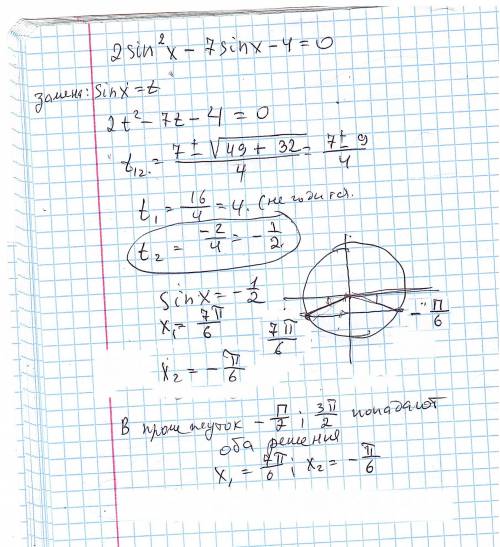 2sin²x - 7sinx - 4 = 0
замена: sinx = t
2t² - 7t - 4 = 0
t₁₂ = (7 ± √(49 + 32))/4 = (7 ± 9)/4
t₁ = 16/4 = 4. (не годится).
t₂ = -2/4 = -1/2
sinx = -1/2
x₁ = 7π/6
7π/6
-π/6
x₂ = -π/6
В промежуток -π/2 ; 3π/2 попадают
оба решения
x₁ = 7π/6 ; x₂ = -π/6